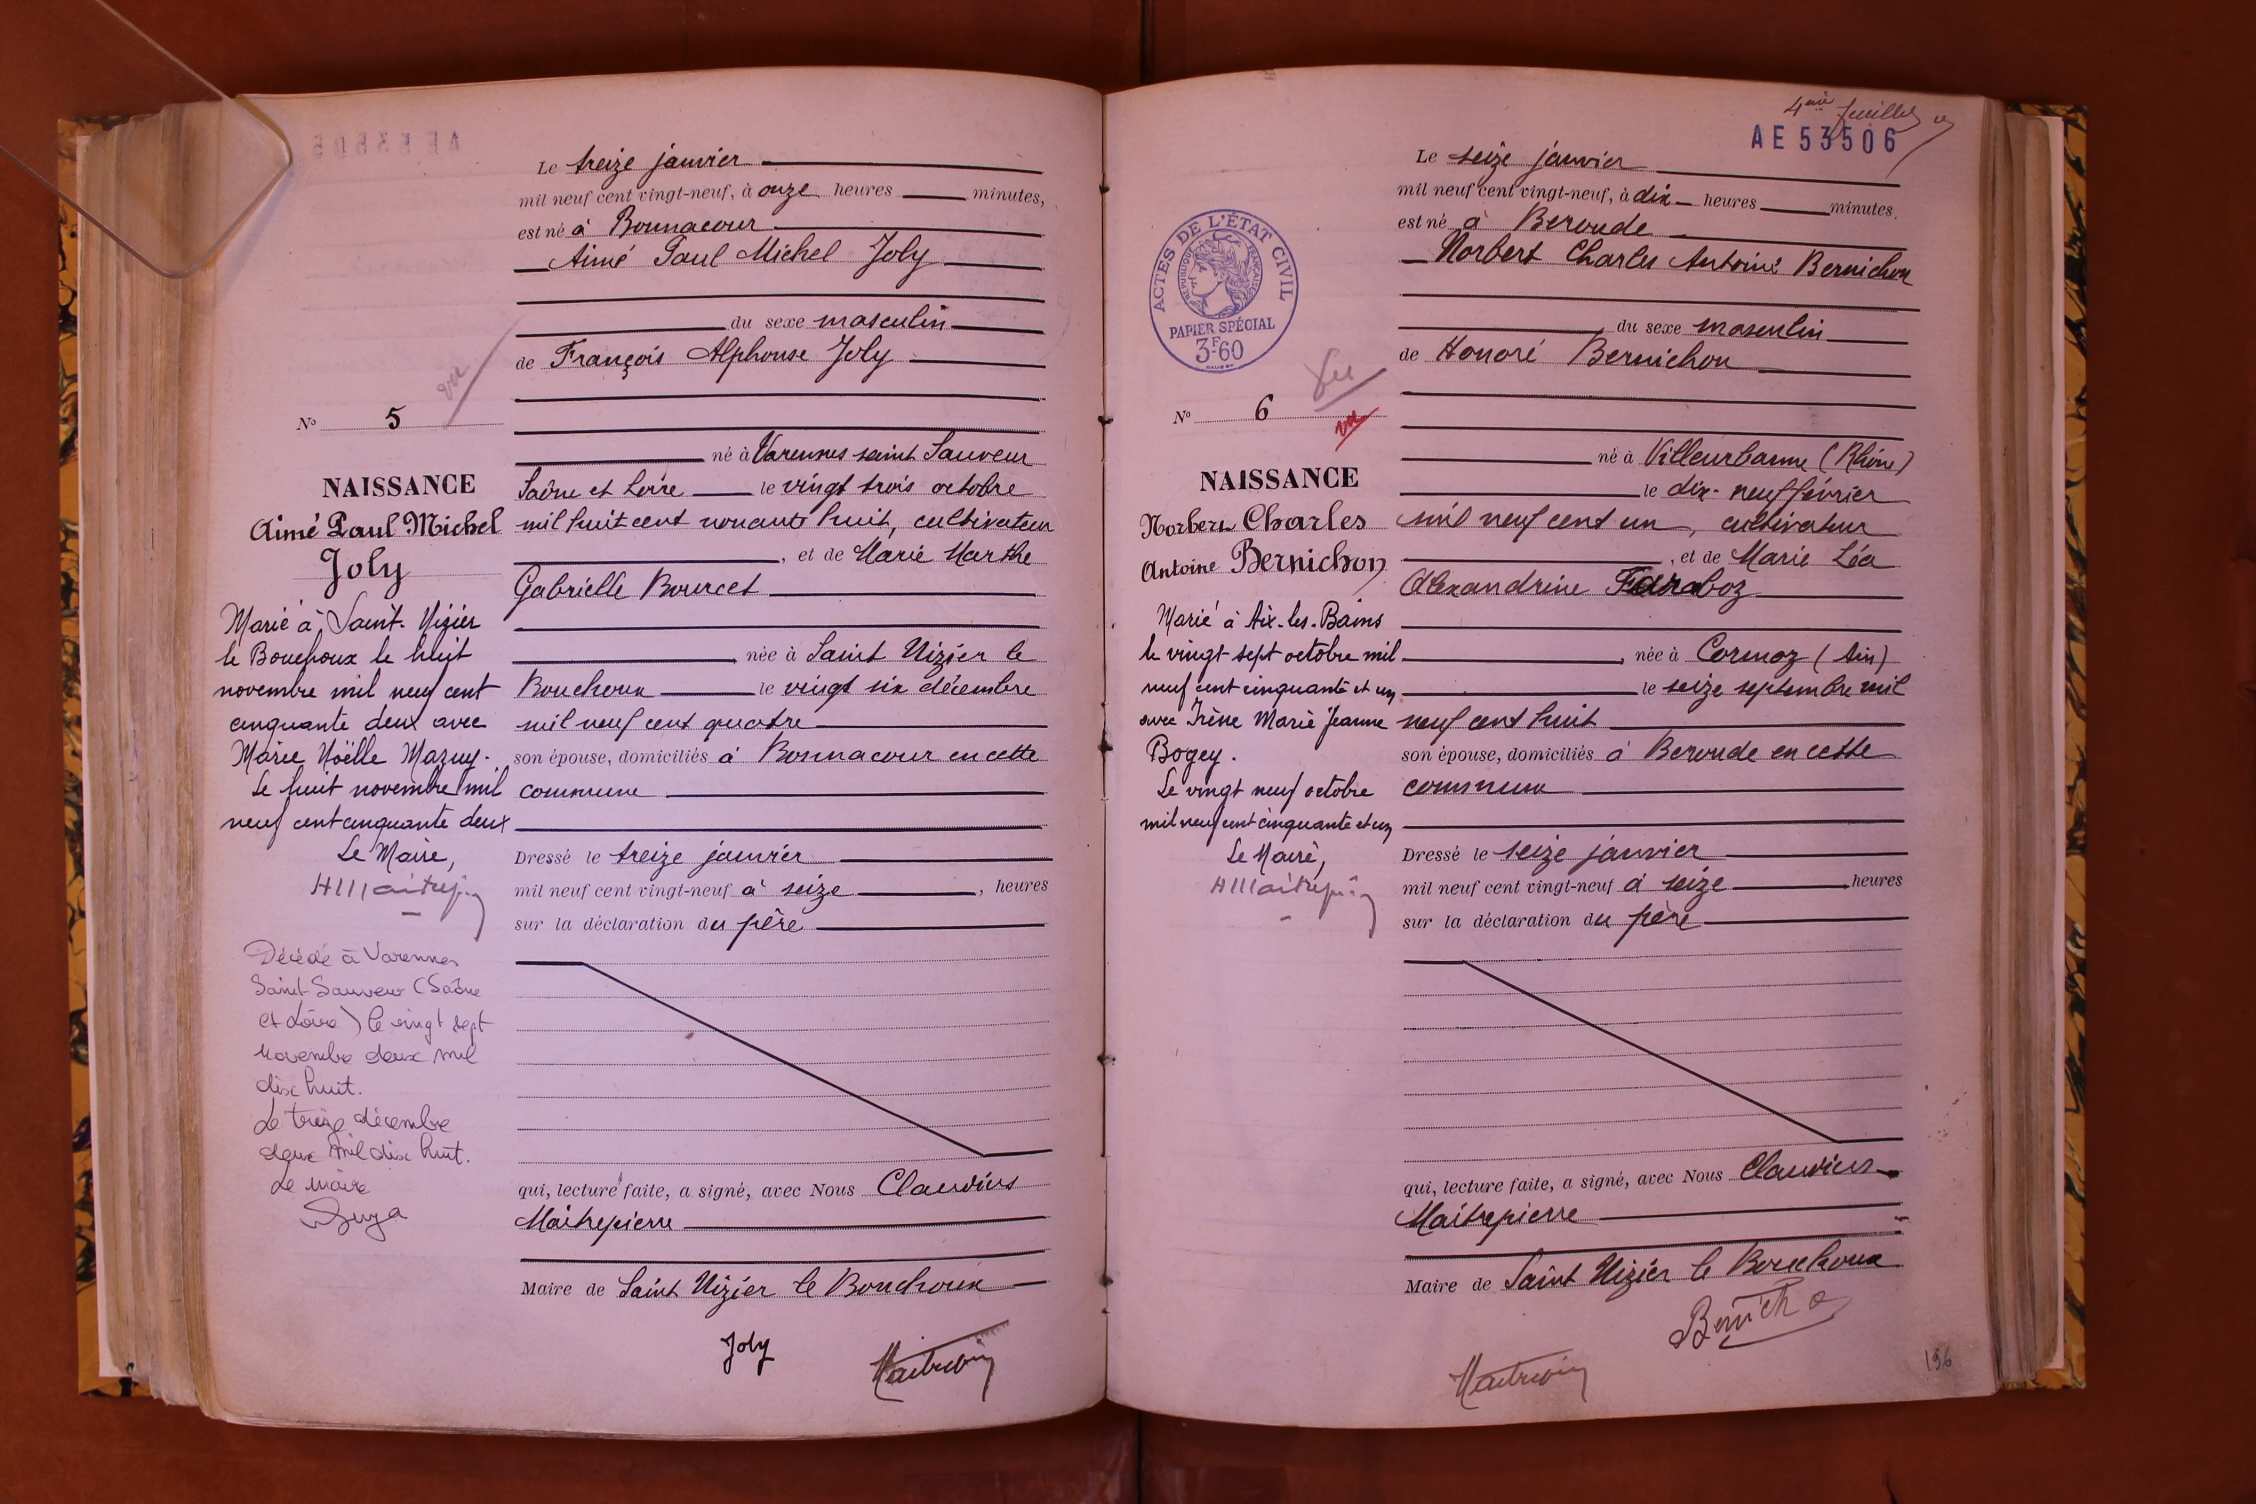 Le treize janvier
mil neuf cent vingt-neuf, à onze heures minutes,
est né à Bonnacour
Aimé Paul Michel Joly
du sexe masculin
de François Alphonse Joly
vu
N° 5
né à Varennes saint Sauveur
Saône et Loire le vingt trois octobre
mil huit cent nonante huit, cultivateur
, et de Marie Marthe
Gabrielle Bourcet
née à Saint Nizier le
Bouchoux le vingt six décembre
mil neuf cent quatre
son épouse, domiciliés à Bonnacour en cette
commune
Dressé le treize janvier
mil neuf cent vingt-neuf à seize , heures
sur la déclaration du père
qui, lecture faite, a signé, avec Nous Claudius
Maitrepierre
Maire de Saint Nizier le Bouchoux
Joly
NAISSANCE
Aimé Paul Michel
Joly
Marié à Saint-Nizier
le Bouchoux le huit
novembre mil neuf cent
cinquante deux avec
Marie Noëlle Mazuy.
Le huit novembre mil
neuf cent cinquante deux
Le Maire,
Décédé à Varennes
Saint-Sauveur (Saône
et Loire) le vingt sept
Novembre deux mil
dix huit.
Le treize décembre
deux mil dix huit.
Le Maire
4ème feuillet
AE 53506
Le seize janvier
mil neuf cent vingt-neuf, à dix heures minutes.
est né à Beroude
Norbert Charles Antoine Bernichon
du sexe masculin
de Honoré Bernichon
ACTES DE L'ÉTAT CIVIL
RÉPUBLIQUE FRANÇAISE
PAPIER SPÉCIAL
3F-60
Vu
N° 6
vu
né à Villeurbanne (Rhône)
le dix-neuf février
mil neuf cent un, cultivateur
, et de Marie Léa
Alexandrine Faraboz
née à Cormoz (Ain)
le seize septembre mil
neuf cent huit
son épouse, domiciliés à Beroude en cette
commune
Dressé le seize janvier
mil neuf cent vingt-neuf à seize heures
sur la déclaration du père
qui, lecture faite, a signé, avec Nous Claudius
Maitrepierre
Maire de Saint Nizier le Bouchoux
NAISSANCE
Norbert Charles
Antoine Bernichon
Marié à Aix-les-Bains
le vingt-sept octobre mil
neuf cent cinquante et un
avec Irène Marie Jeanne
Bogey.
Le vingt neuf octobre
mil neuf cent cinquante et un
Le Maire,
196